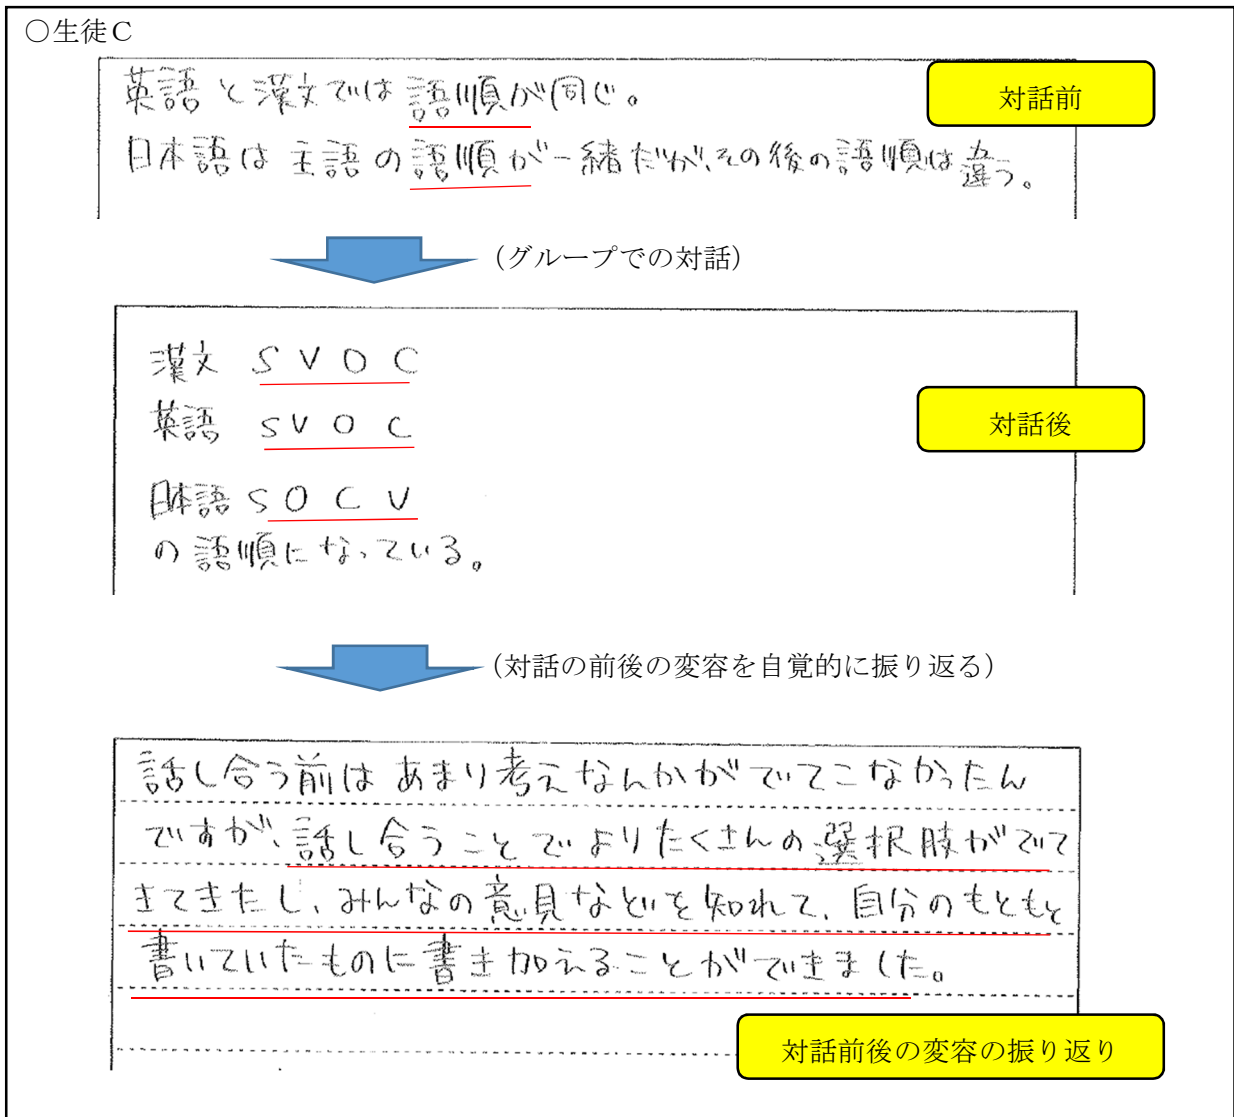 ○生徒C
対話前
英語と漢文では語順が同じ。
日本語は主語の語順が一緒だが、その後の語順は違う。
(グループでの対話)
対話後
漢文 SVOC
英語 SVOC
日本語 SOCV
の語順になっている。
(対話の前後の変容を自覚的に振り返る)
話し合う前はあまり考えなんかがでてこなかったん
ですが、話し合うことでよりたくさんの選択肢がでて
きてきたし、みんなの意見などを知れて、自分のもともと
書いていたものに書き加えることができました。
対話前後の変容の振り返り